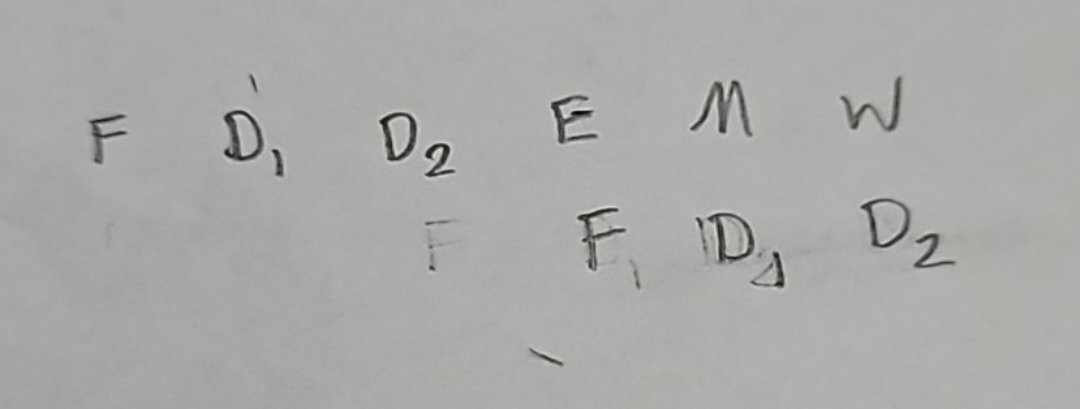 F D₁ D₂ E M W
F F₁ D₁ D₂